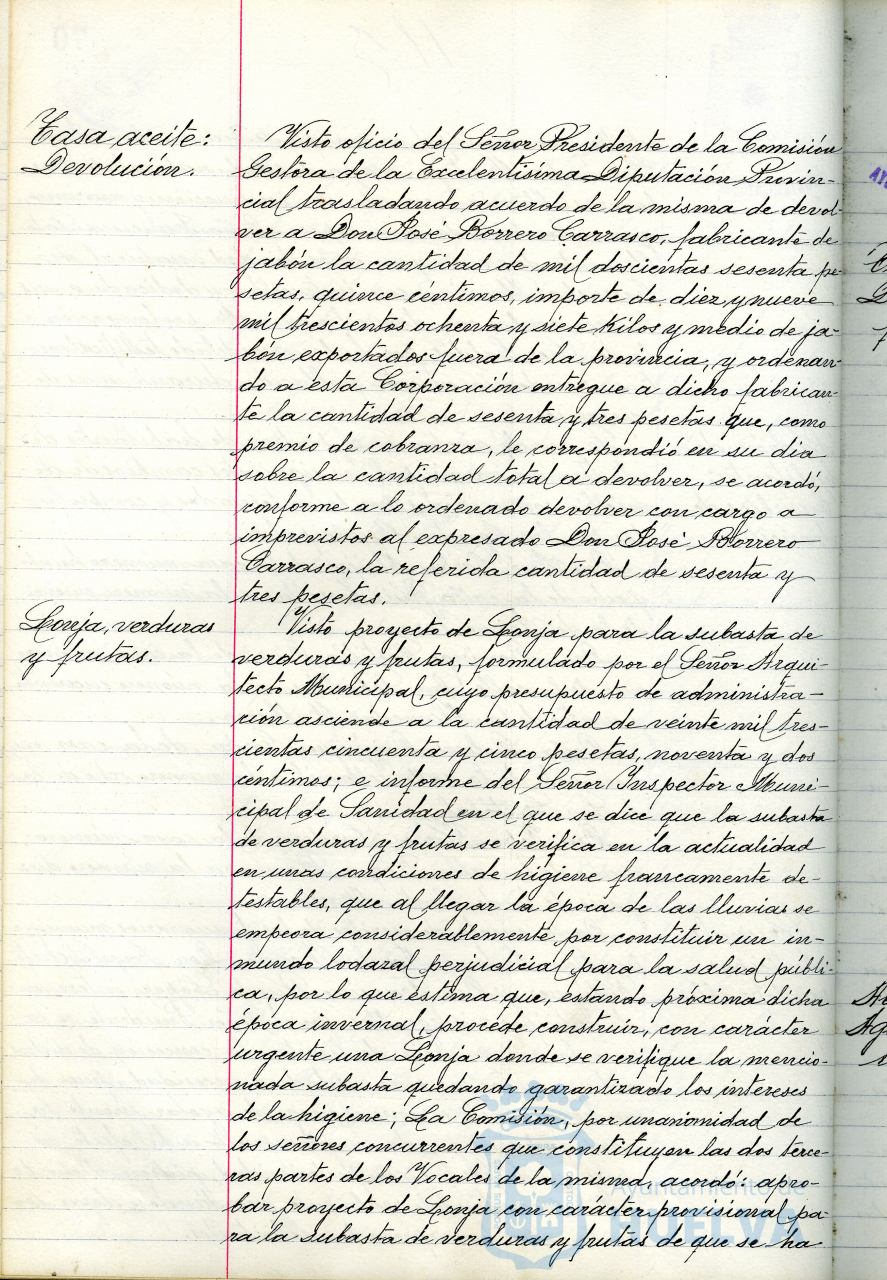 Tasa aceite:
Devolución.
Visto oficio del Señor Presidente de la Comisión
Gestora de la Excelentísima Diputación Provin-
cial trasladando acuerdo de la misma de devol-
ver a Don José Borrero Carrasco, fabricante de
jabón la cantidad de mil doscientas sesenta pe-
setas, quince céntimos, importe de diez y nueve
mil trescientos ochenta y siete Kilos y medio de ja-
bón exportados fuera de la provincia, y ordenan-
do a esta Corporación entregue a dicho fabrican-
te la cantidad de sesenta y tres pesetas que, como
premio de cobranza, le correspondió en su dia
sobre la cantidad total a devolver, se acordó,
conforme a lo ordenado devolver con cargo a
imprevistos al expresado Don José Borrero
Carrasco, la referida cantidad de sesenta y
tres pesetas.
Lonja, verduras
y frutas.
Visto proyecto de Lonja para la subasta de
verduras y frutas, formulado por el Señor Arqui-
tecto Municipal, cuyo presupuesto de administra-
ción asciende a la cantidad de veinte mil tres-
cientas cincuenta y cinco pesetas, noventa y dos
céntimos; e informe del Señor Inspector Muni-
cipal de Sanidad en el que se dice que la subasta
de verduras y frutas se verifica en la actualidad
en unas condiciones de higiene francamente de-
testables, que al llegar la época de las lluvias se
empeora considerablemente por constituir un in-
mundo lodazal perjudicial para la salud públi-
ca, por lo que estima que, estando próxima dicha
época invernal, procede construir, con carácter
urgente una Lonja donde se verifique la mencio-
nada subasta quedando garantizado los intereses
de la higiene; La Comisión, por unanimidad de
los señores concurrentes que constituyen las dos terce-
ras partes de los Vocales de la misma, acordó: apro-
bar proyecto de Lonja con carácter provisional pa-
ra la subasta de verduras y frutas de que se ha
Ayuntamiento de
HUELVA